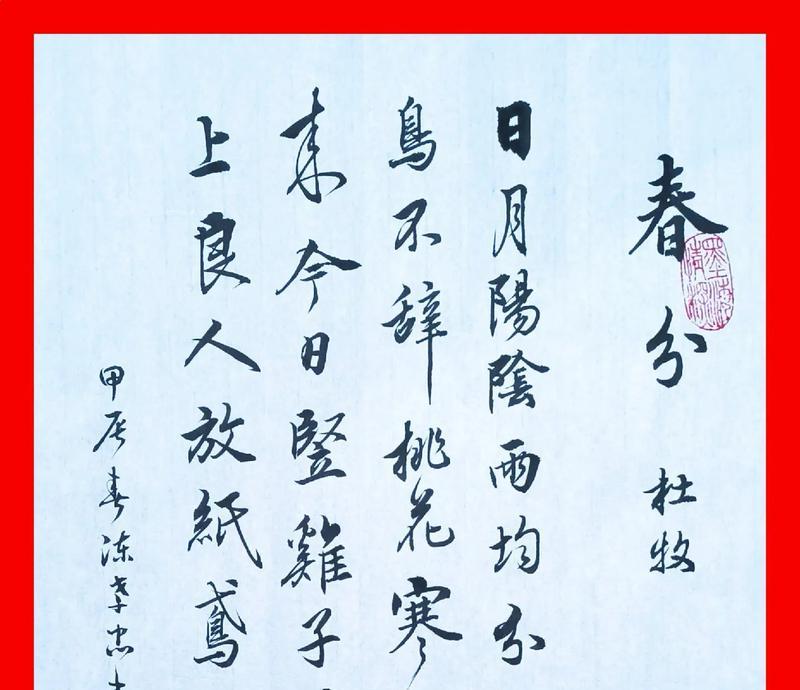 春分 杜牧
日月陽陰兩均分
鳥不辞桃花寒
来今日豎雞子
上良人放紙鳶
甲辰春